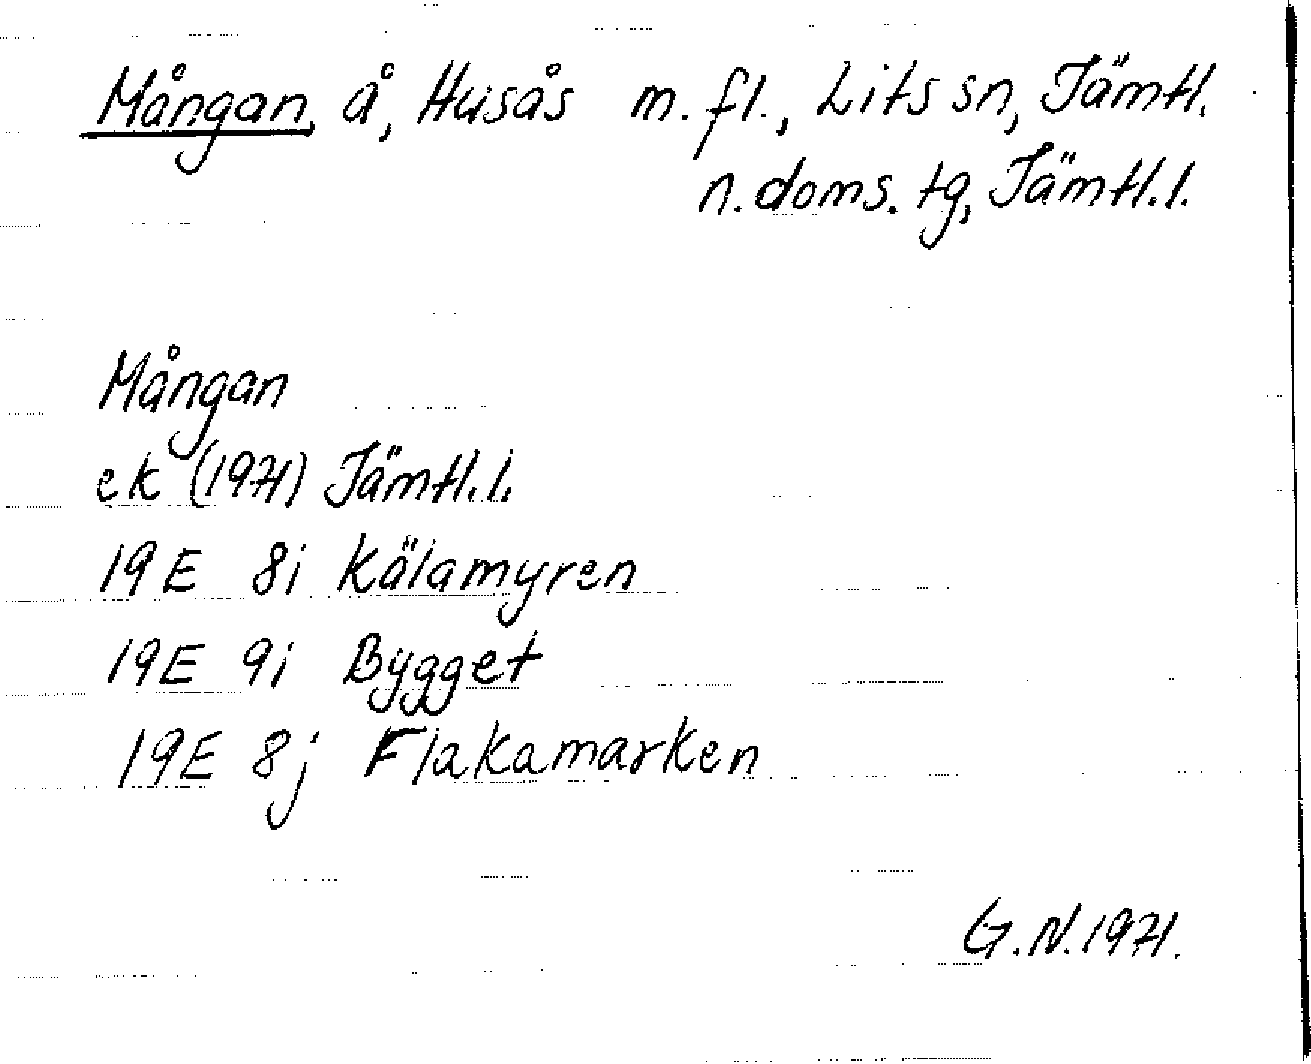 Mångan, å, Husås m. fl., Lits sn, Jämtl.
n. doms. tg, Jämtl. l.
Mångan
ek (1971) Jämtl. l.
19E 8i Kälamyren
19E 9i Bygget
19E 8j Flakamarken
G. N. 1971.